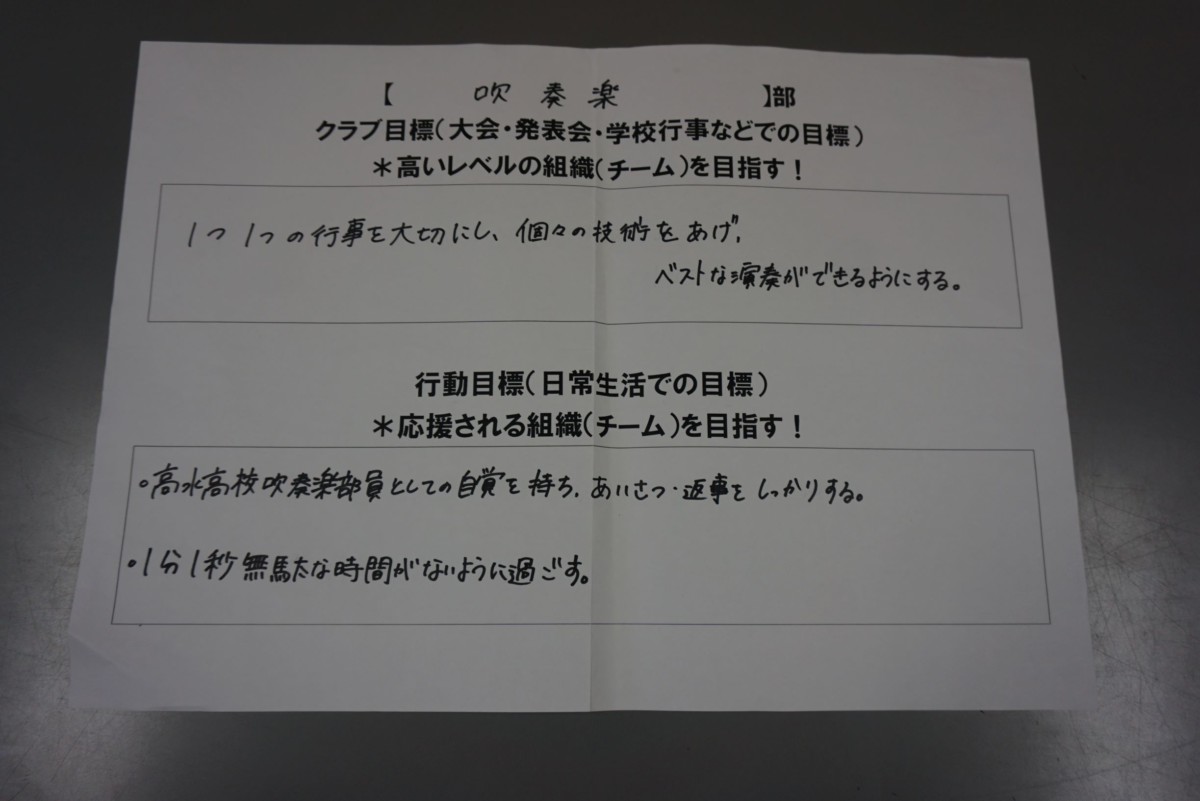 【 吹奏楽 】部
クラブ目標(大会・発表会・学校行事などでの目標)
＊高いレベルの組織(チーム)を目指す！
1つ1つの行事を大切にし、個々の技術をあげ、
ベストな演奏ができるようにする。
行動目標(日常生活での目標)
＊応援される組織(チーム)を目指す！
。高水高校吹奏楽部員としての自覚を持ち、あいさつ・返事をしっかりする。
・1分1秒無駄な時間がないように過ごす。